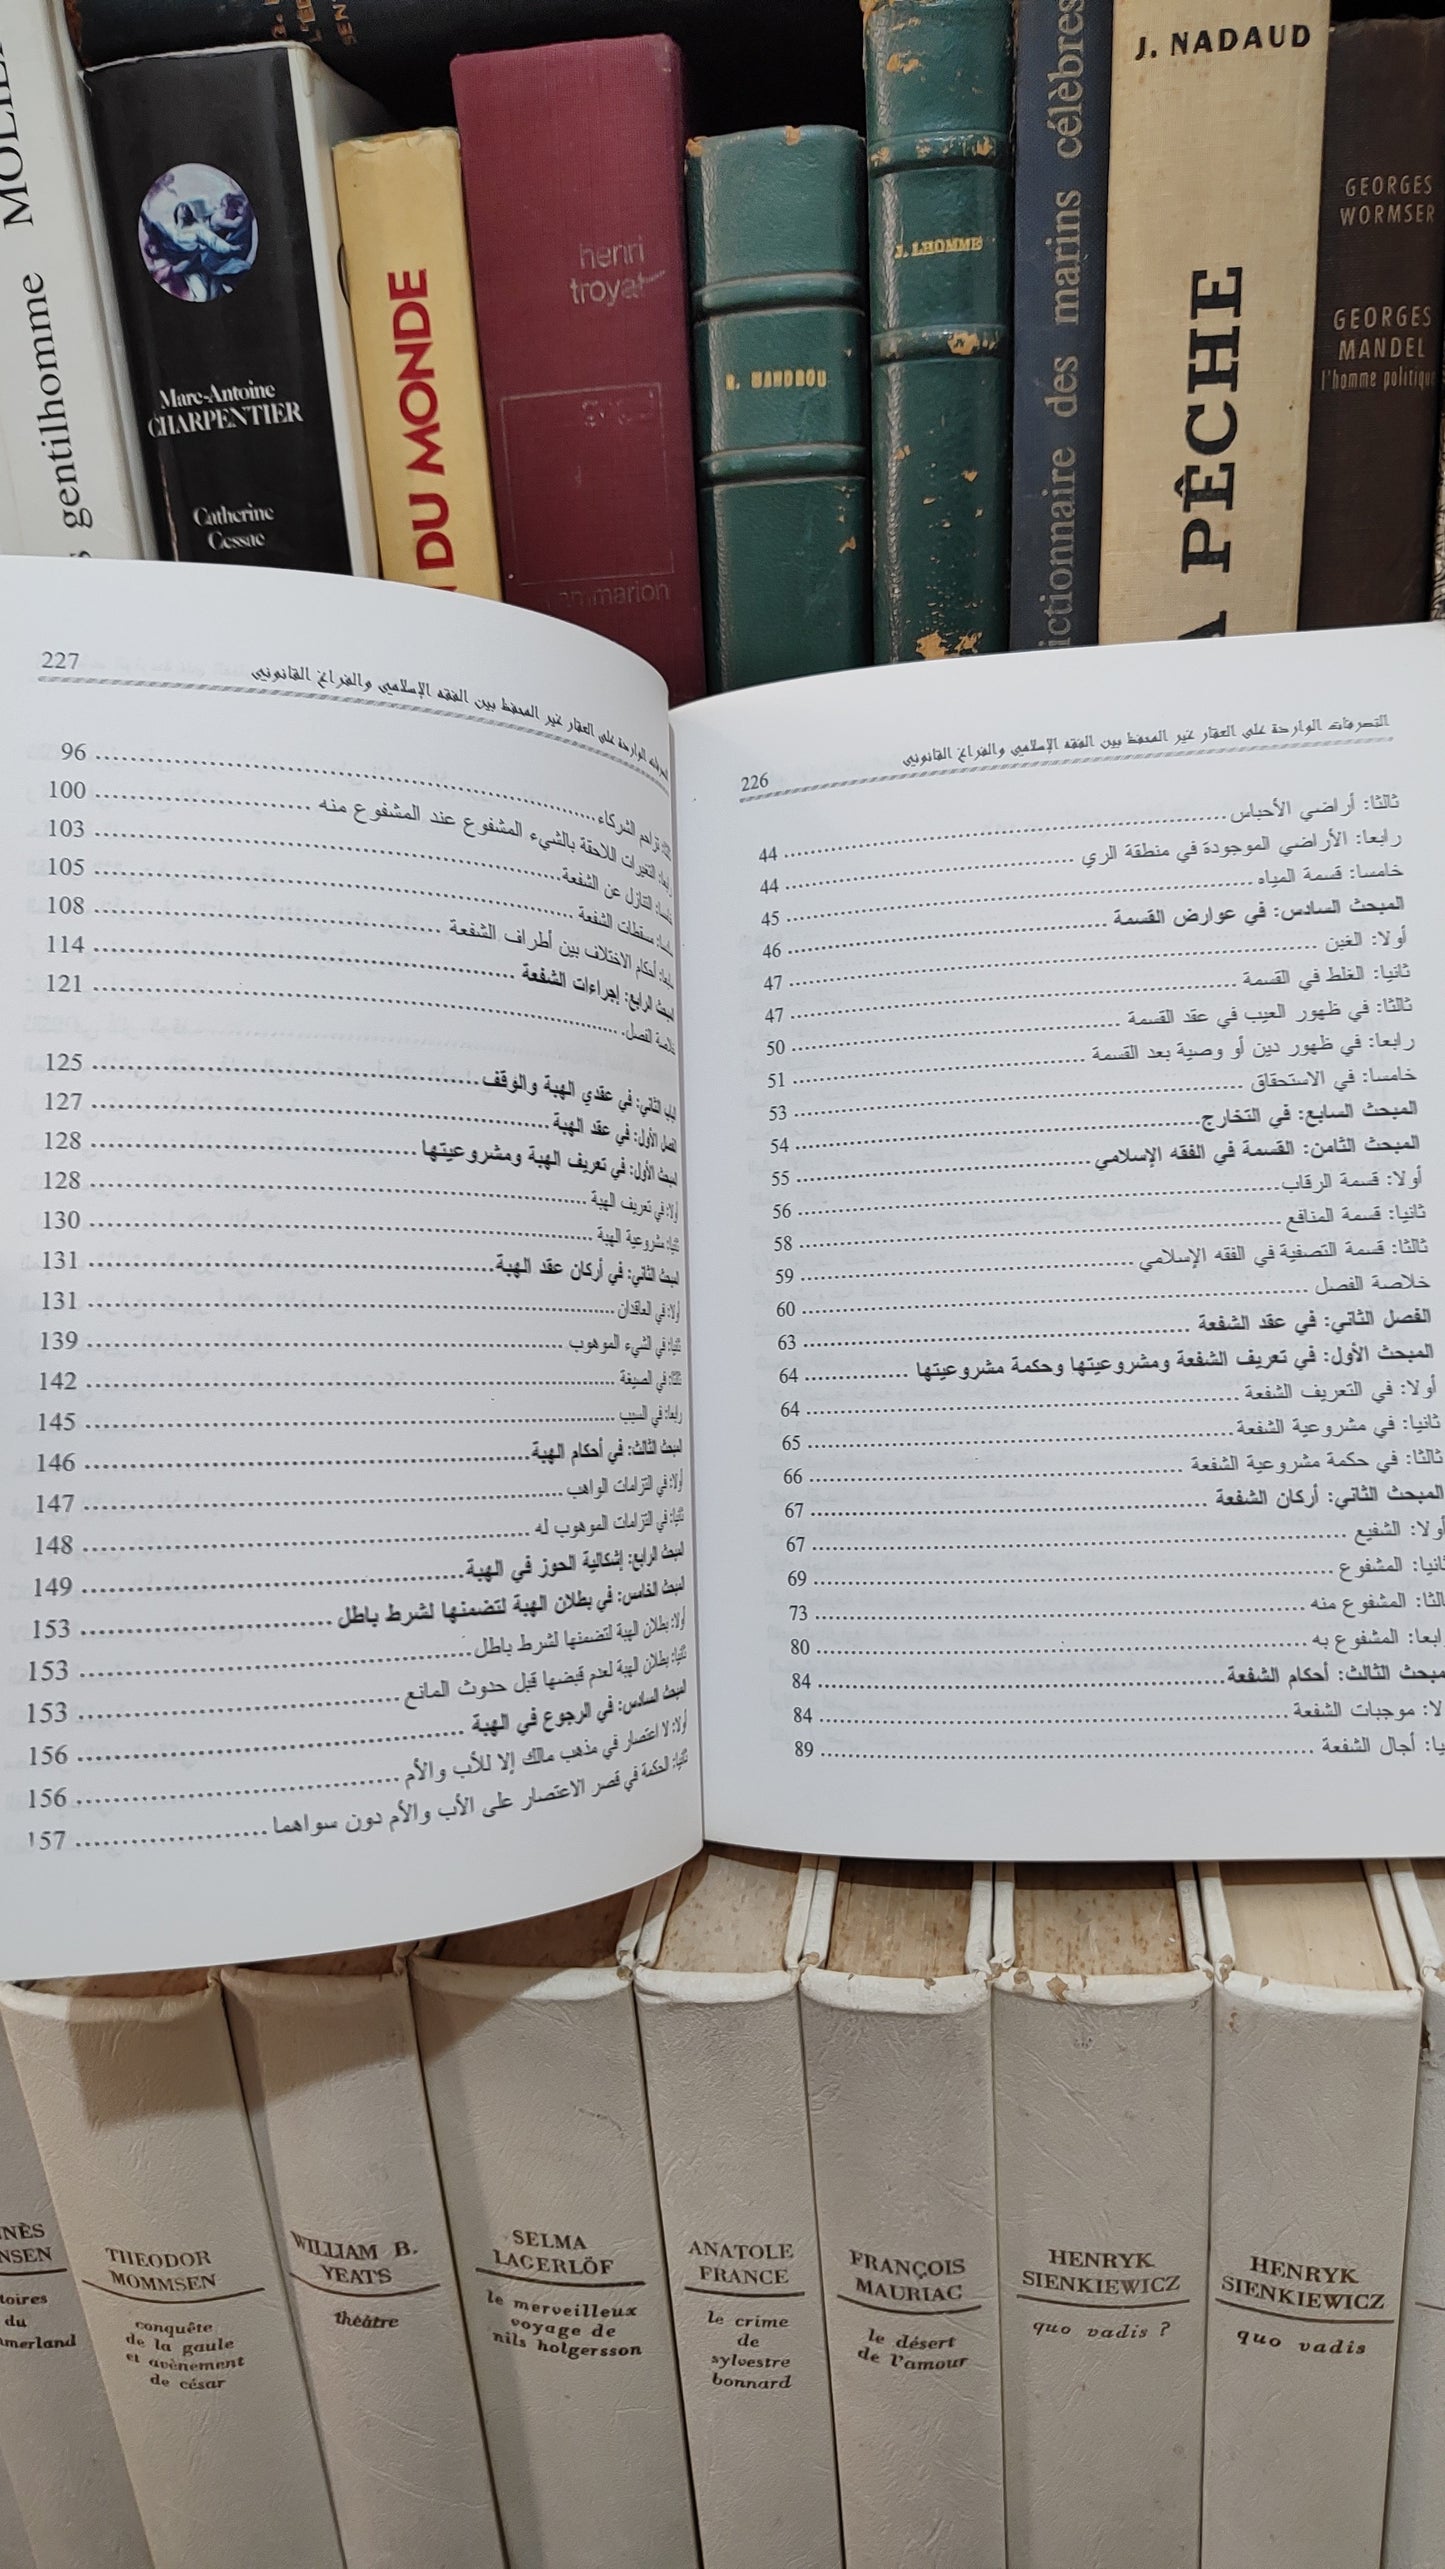 MOLIE
gentilhomme
Marc-Antoine
CHARPENTIER
Catherine
Cessac
DU MONDE
henri
troyat
J. LHOMME
ictionnaire des marins célèbres
J. NADAUD
PÊCHE
GEORGES
WORMSER
GEORGES
MANDEL
l'homme politique
226
التصرفات الواردة على العقار غير المحفظ بين الفقه الإسلامي والفراغ القانوني
ثالثا: أراضي الأحباس 44
رابعا: الأراضي الموجودة في منطقة الري 44
خامسا: قسمة المياه 45
المبحث السادس: في عوارض القسمة 46
أولا: الغبن 47
ثانيا: الغلط في القسمة 47
ثالثا: في ظهور العيب في عقد القسمة 50
رابعا: في ظهور دين أو وصية بعد القسمة 51
خامسا: في الاستحقاق 53
المبحث السابع: في التخارج 54
المبحث الثامن: القسمة في الفقه الإسلامي 55
أولا: قسمة الرقاب 56
ثانيا: قسمة المنافع 58
ثالثا: قسمة التصفية في الفقه الإسلامي 59
خلاصة الفصل 60
الفصل الثاني: في عقد الشفعة 63
المبحث الأول: في تعريف الشفعة ومشروعيتها وحكمة مشروعيتها 64
أولا: في التعريف الشفعة 64
ثانيا: في مشروعية الشفعة 65
ثالثا: في حكمة مشروعية الشفعة 66
المبحث الثاني: أركان الشفعة 67
أولا: الشفيع 67
ثانيا: المشفوع 69
الثا: المشفوع منه 73
ابعا: المشفوع به 80
مبحث الثالث: أحكام الشفعة 84
لا: موجبات الشفعة 84
يا: أجال الشفعة 89
227
الواردة على العقار غير المحفظ بين الفقه الإسلامي والفراغ القانوني
تزاحم الشركاء 96
رابعا: التغيرات اللاحقة بالشيء المشفوع عند المشفوع منه 100
خامسا: التنازل عن الشفعة 103
مسقطات الشفعة 105
أحكام الاختلاف بين أطراف الشفعة 108
المبحث الرابع: إجراءات الشفعة 114
خلاصة الفصل 121
الباب الثاني: في عقدي الهبة والوقف 125
الفصل الأول: في عقد الهبة 127
المبحث الأول: في تعريف الهبة ومشروعيتها 128
أولا: في تعريف الهبة 128
ثانيا: مشروعية الهبة 130
المبحث الثاني: في أركان عقد الهبة 131
أولا: في العاقدان 131
ثانيا: في الشيء الموهوب 139
ثالثا: في الصيغة 142
رابعا: في السبب 145
المبحث الثالث: في أحكام الهبة 146
أولا: في التزامات الواهب 147
ثانيا: في التزامات الموهوب له 148
المبحث الرابع: إشكالية الحوز في الهبة 149
المبحث الخامس: في بطلان الهبة لتضمنها لشرط باطل 153
أولا: بطلان الهبة لتضمنها لشرط باطل 153
ثانيا: بطلان الهبة لعدم قبضها قبل حدوث المانع 153
المبحث السادس: في الرجوع في الهبة 156
أولا: لا اعتصار في مذهب مالك إلا للأب والأم 156
ثانيا: الحكمة في قصر الاعتصار على الأب والأم دون سواهما 157
THEODOR
MOMMSEN
conquête
de la gaule
et avènement
de césar
WILLIAM B.
YEATS
théâtre
SELMA
LAGERLÖF
le merveilleux
voyage de
nils holgersson
ANATOLE
FRANCE
le crime
de
sylvestre
bonnard
FRANÇOIS
MAURIAC
le désert
de l'amour
HENRYK
SIENKIEWICZ
quo vadis ?
HENRYK
SIENKIEWICZ
quo vadis